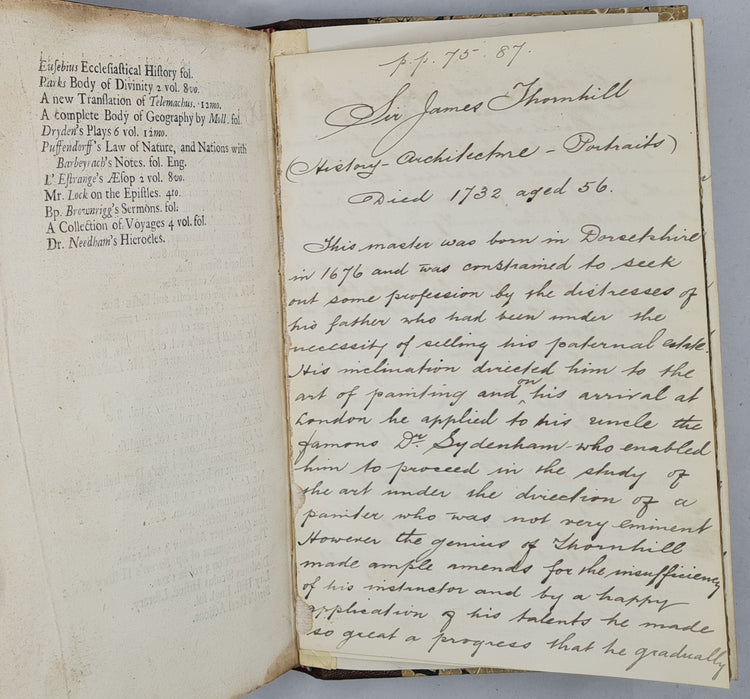 Eusebius Ecclesiastical History fol.
Parks Body of Divinity 2 vol. 8vo.
A new Translation of Telemachus. 12mo.
A complete Body of Geography by Moll. fol.
Dryden's Plays 6 vol. 12mo.
Puffendorff's Law of Nature, and Nations with
Barbeyrach's Notes. fol. Eng.
L'Estrange's Æsop 2 vol. 8vo.
Mr. Lock on the Epistles. 4to.
Bp. Brownrigg's Sermons. fol.
A Collection of Voyages 4 vol. fol.
Dr. Needham's Hierocles.
p.p. 75-87.
Sir James Thornhill
(History - Architecture - Portraits)
Died 1732 aged 56.
This master was born in Dorsetshire
in 1676 and was constrained to seek
out some profession by the distresses of
his father who had been under the
necessity of selling his paternal estate.
His inclination directed him to the
art of painting and on his arrival at
London he applied to his uncle the
famous Dr. Sydenham who enabled
him to proceed in the study of
the art under the direction of a
painter who was not very eminent
However the genius of Thornhill
made ample amends for the insufficiency
of his instructor and by a happy
application of his talents he made
so great a progress that he gradually